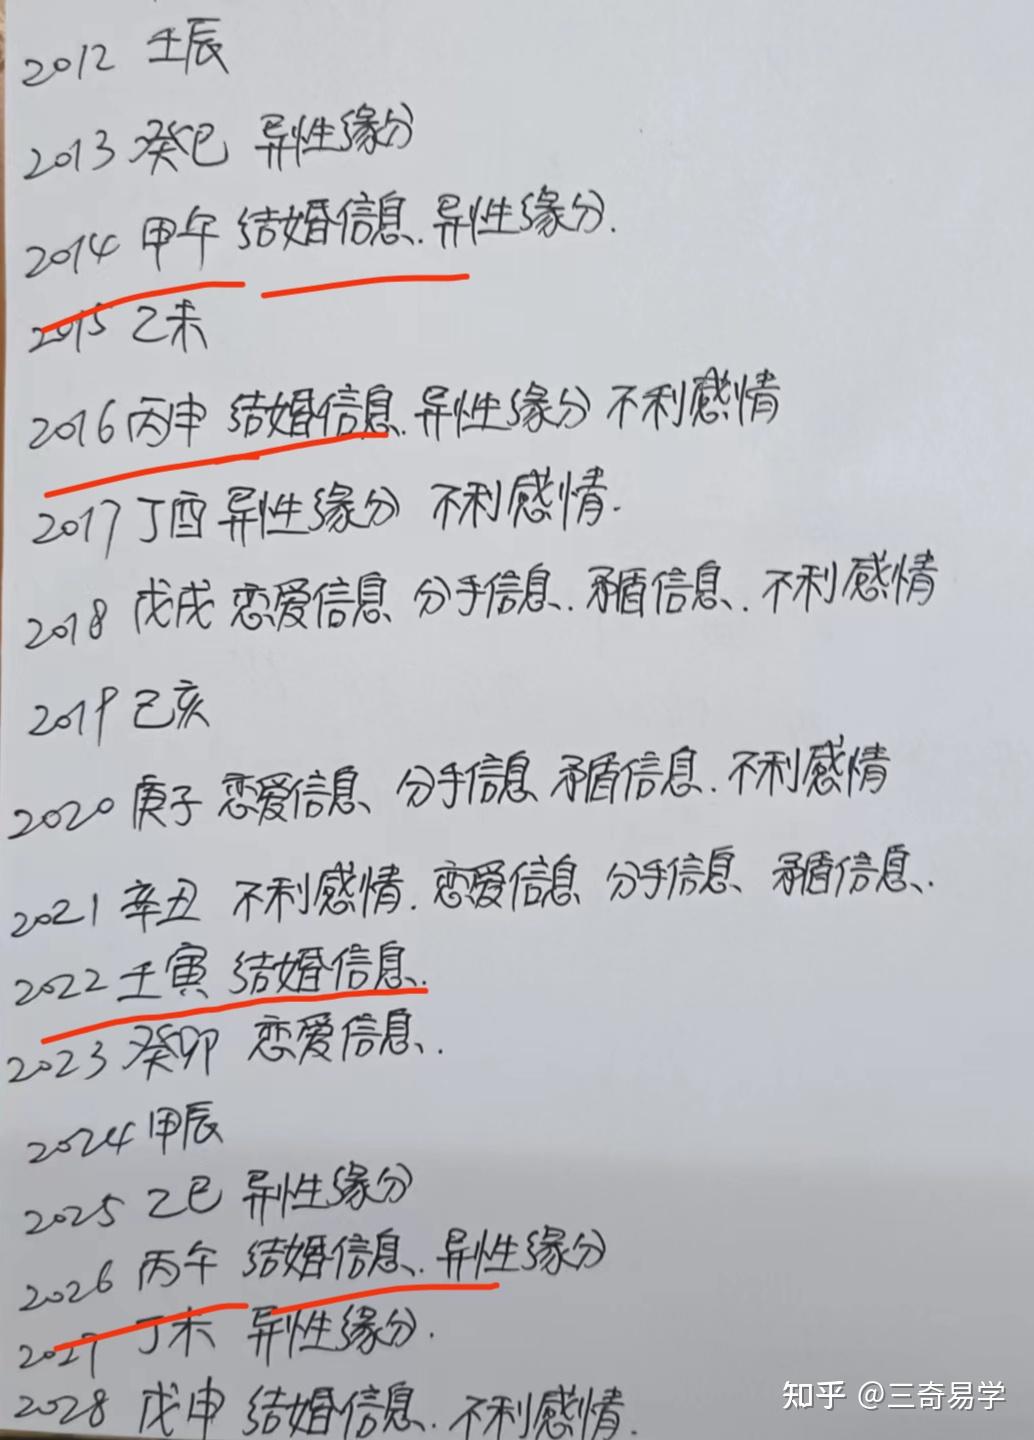 2012 壬辰
2013 癸巳 异性缘分
2014 甲午 结婚信息.异性缘分.
2015 乙未
2016 丙申 结婚信息.异性缘分 不利感情
2017 丁酉 异性缘分 不利感情.
2018 戊戌 恋爱信息 分手信息.矛盾信息.不利感情
2019 己亥
2020 庚子 恋爱信息、分手信息 矛盾信息.不利感情
2021 辛丑 不利感情.恋爱信息 分手信息 矛盾信息.
2022 壬寅 结婚信息.
2023 癸卯 恋爱信息.
2024 甲辰
2025 乙巳 异性缘分
2026 丙午 结婚信息.异性缘分
2027 丁未 异性缘分.
2028 戊申 结婚信息.不利感情.
知乎 @三奇易学